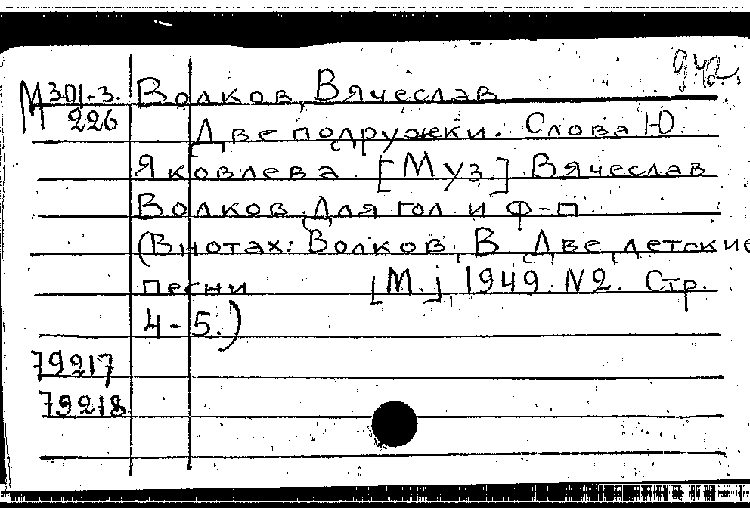 942
М 301-3. Волков, Вячеслав
226
Две подружки. Слова Ю.
Яковлева. [Муз.] Вячеслав
Волков. Для гол. и ф-п.
(В нотах: Волков, В. Две детские
песни [М.], 1949. N2. Стр.
4-5.)
79217
79218